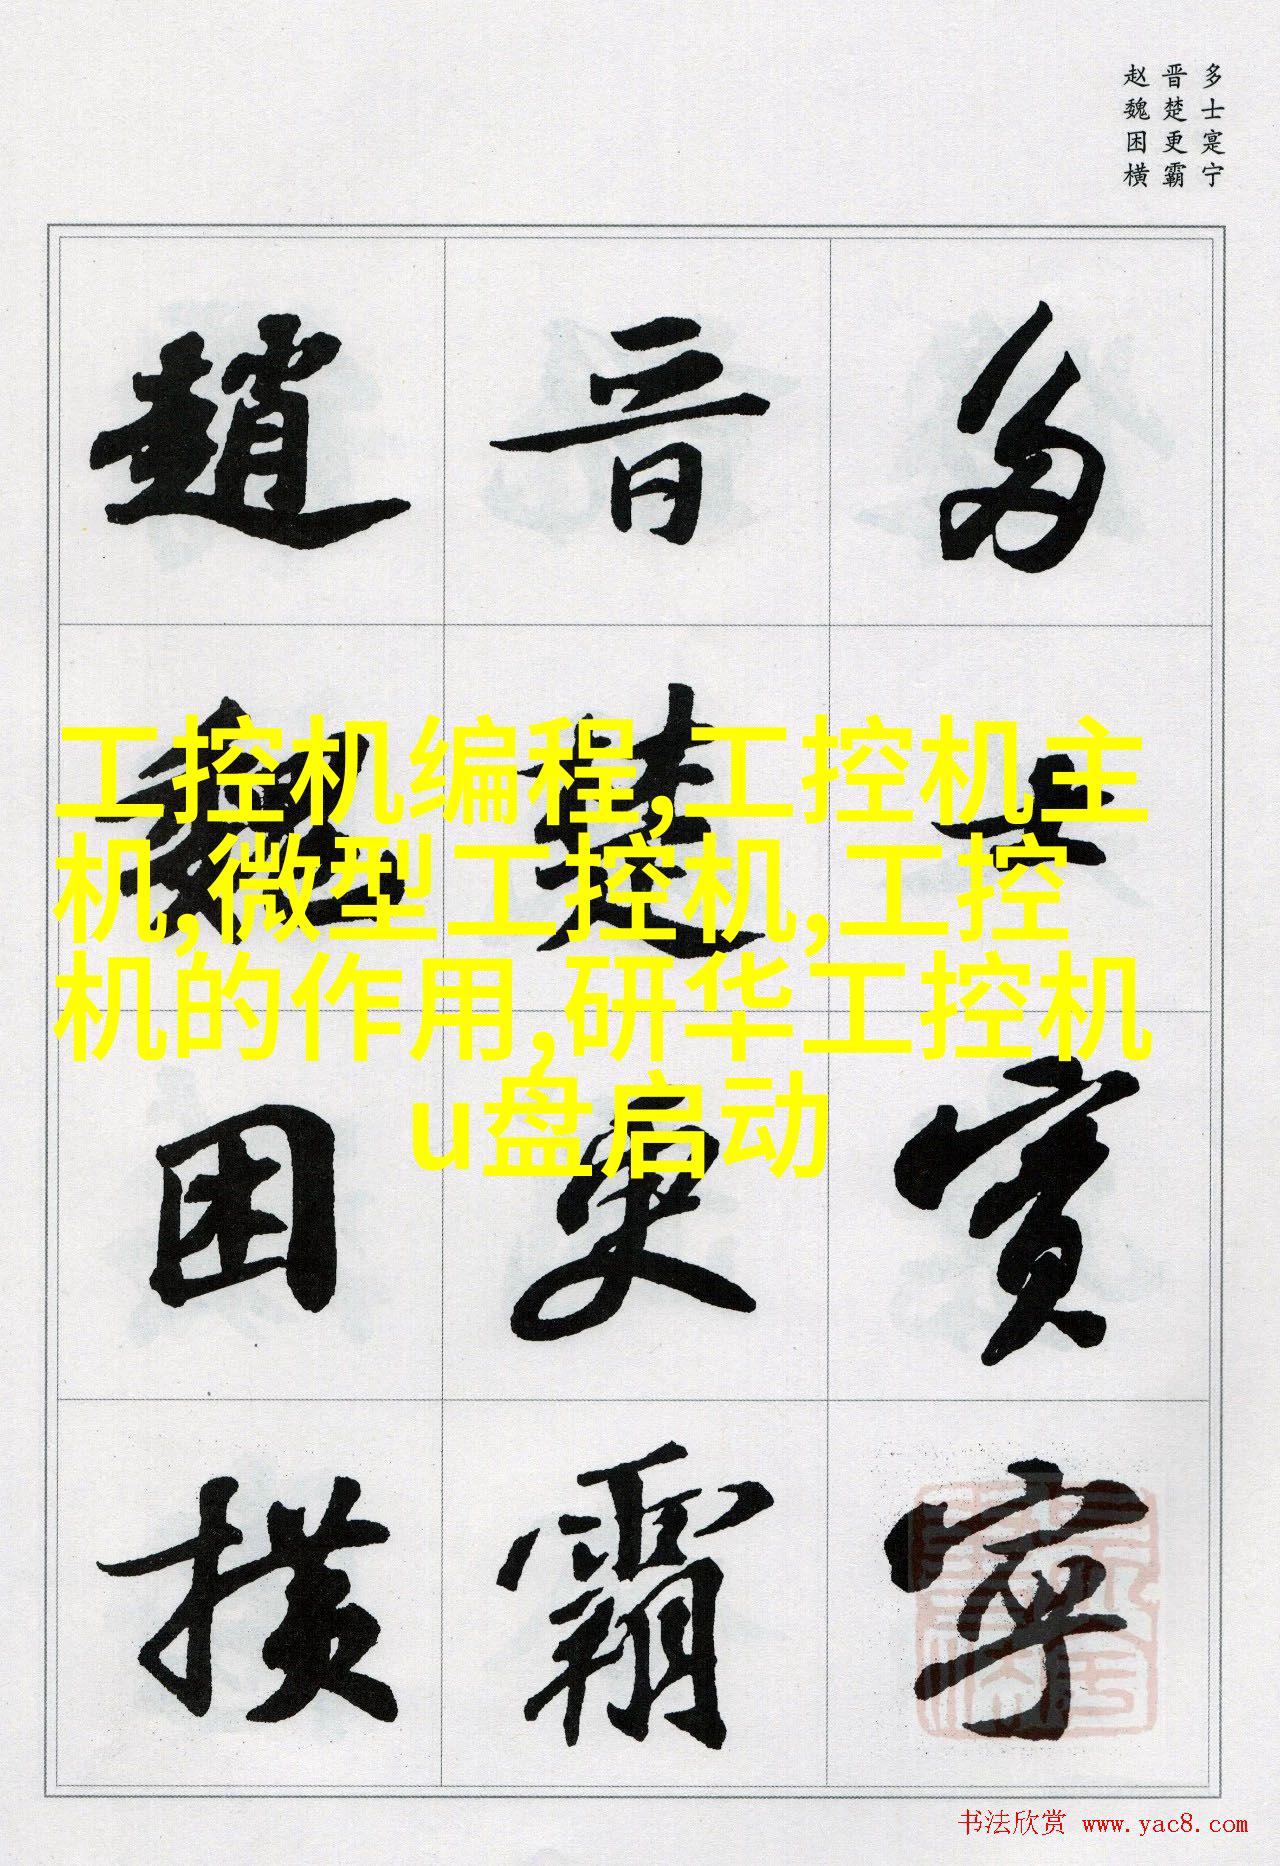 多士寔宁
晋楚更霸
赵魏困横
多士寔寧
晋楚更霸
趙魏困横
工控机编程,工控机主
机,微型工控机,工控
机的作用,研华工控机
u盘启动
书法欣赏 www.yac8.com